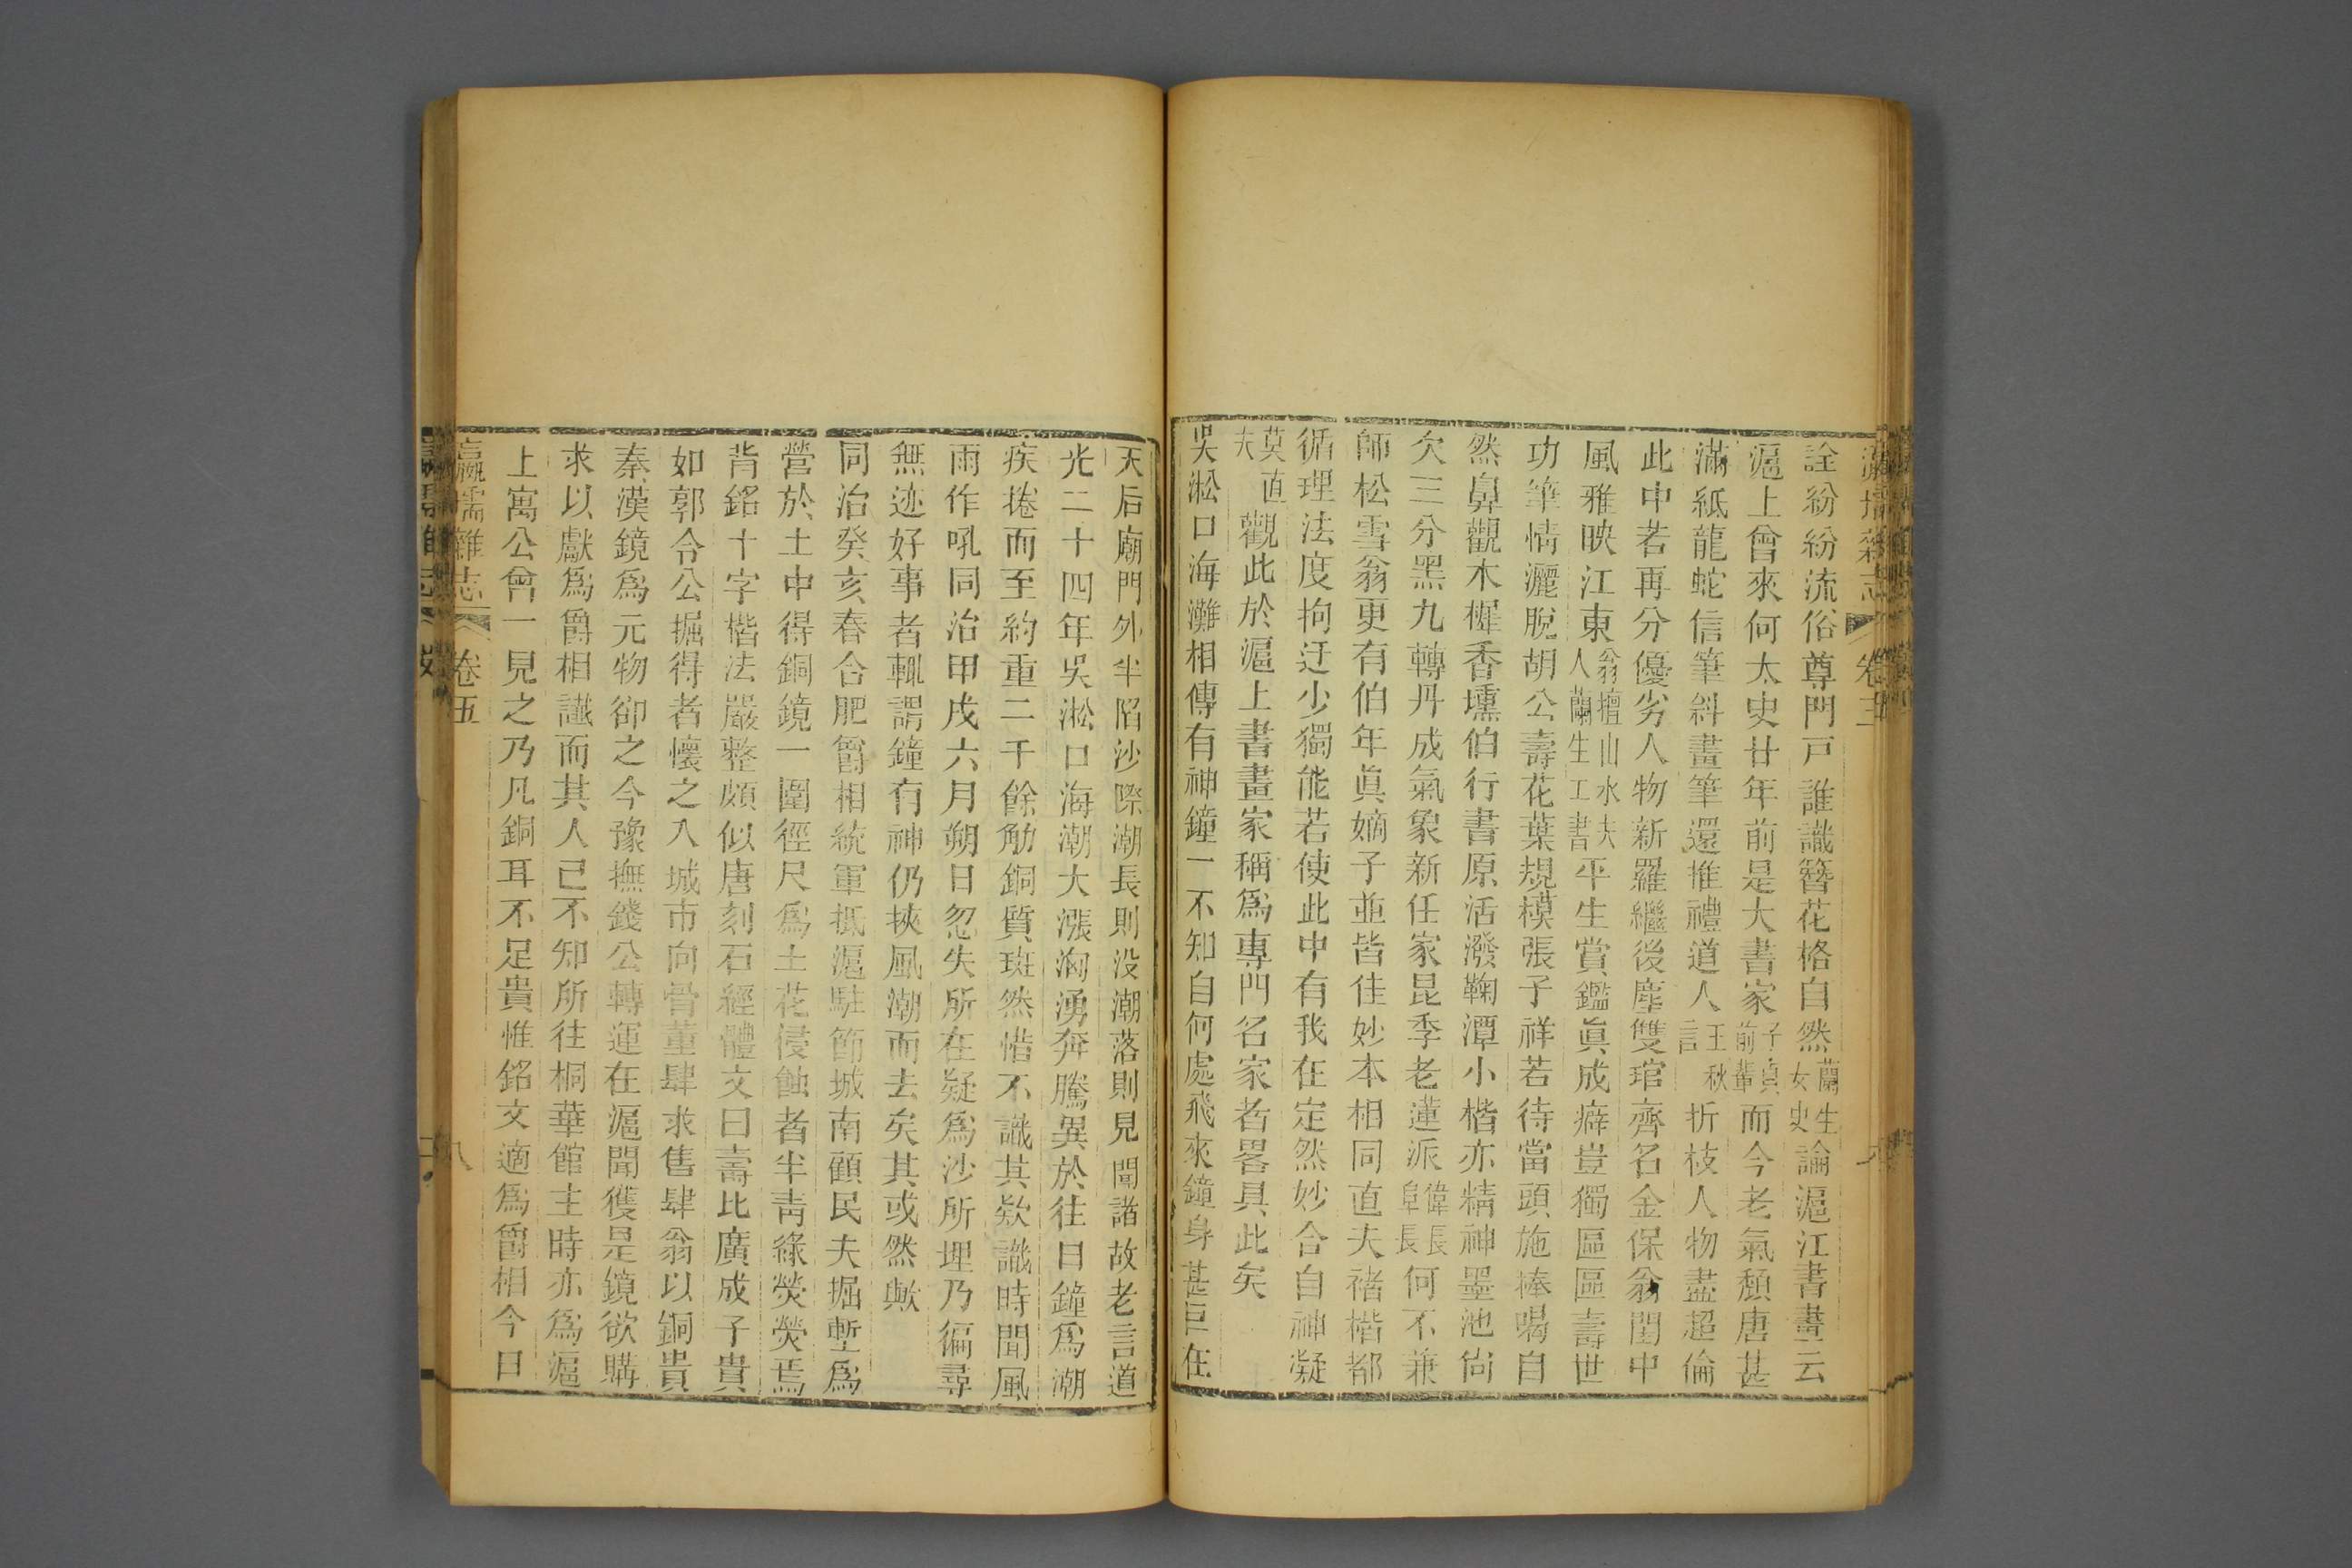 詮紛紛流俗尊門戸誰識簪花格自然蘭生女史論滬江書畫云
滬上曾來何太史廿年前是大書家子貞前輩而今老氣頽唐甚
滿紙龍蛇信筆斜畫筆還推禮道人王秋言折枝人物盡超倫
此中若再分優劣人物新羅繼後塵雙琯齊名金保翁閨中
風雅映江東翁擅山水夫人蘭生工書平生賞鑑眞成癖豈獨區區壽世
功筆情灑脫胡公壽花葉規模張子祥若待當頭施捧喝自
然鼻觀木樨香壎伯行書原活潑鞠潭小楷亦精神墨池尙
欠三分黑九轉丹成氣象新任家昆季老蓮派偉長阜長何不兼
師松雪翁更有伯年眞嫡子並皆佳妙本相同直夫禇楷都
循理法度拘迂少獨能若使此中有我在定然妙合自神凝
莫直夫觀此於滬上書畫家稱爲專門名家者畧具此矣
吳淞口海灘相傳有神鐘一不知自何處飛來鐘身甚巨在
天后廟門外半陷沙際潮長則没潮落則見聞諸故老言道
光二十四年吳淞口海潮大漲洶湧奔騰異於往日鐘爲潮
疾捲而至約重二千餘觔銅質斑然惜不識其欵識時聞風
雨作吼同治甲戌六月朔日忽失所在疑爲沙所埋乃徧尋
無迹好事者輒謂鐘有神仍挾風潮而去矣其或然歟
同治癸亥春合肥爵相統軍抵滬駐節城南顧民夫掘塹爲
營於土中得銅鏡一圍徑尺爲土花侵蝕者半靑綠熒熒焉
背銘十字楷法嚴整頗似唐刻石經體文曰壽比廣成子貴
如郭令公掘得者懷之入城市向骨董肆求售肆翁以銅貴
秦漢鏡爲元物卻之今豫撫錢公轉運在滬聞獲是鏡欲購
求以獻爲爵相讖而其人已不知所往桐華館主時亦爲滬
上寓公曾一見之乃凡銅耳不足貴惟銘文適爲爵相今日
瀛壖雜志 卷五 八